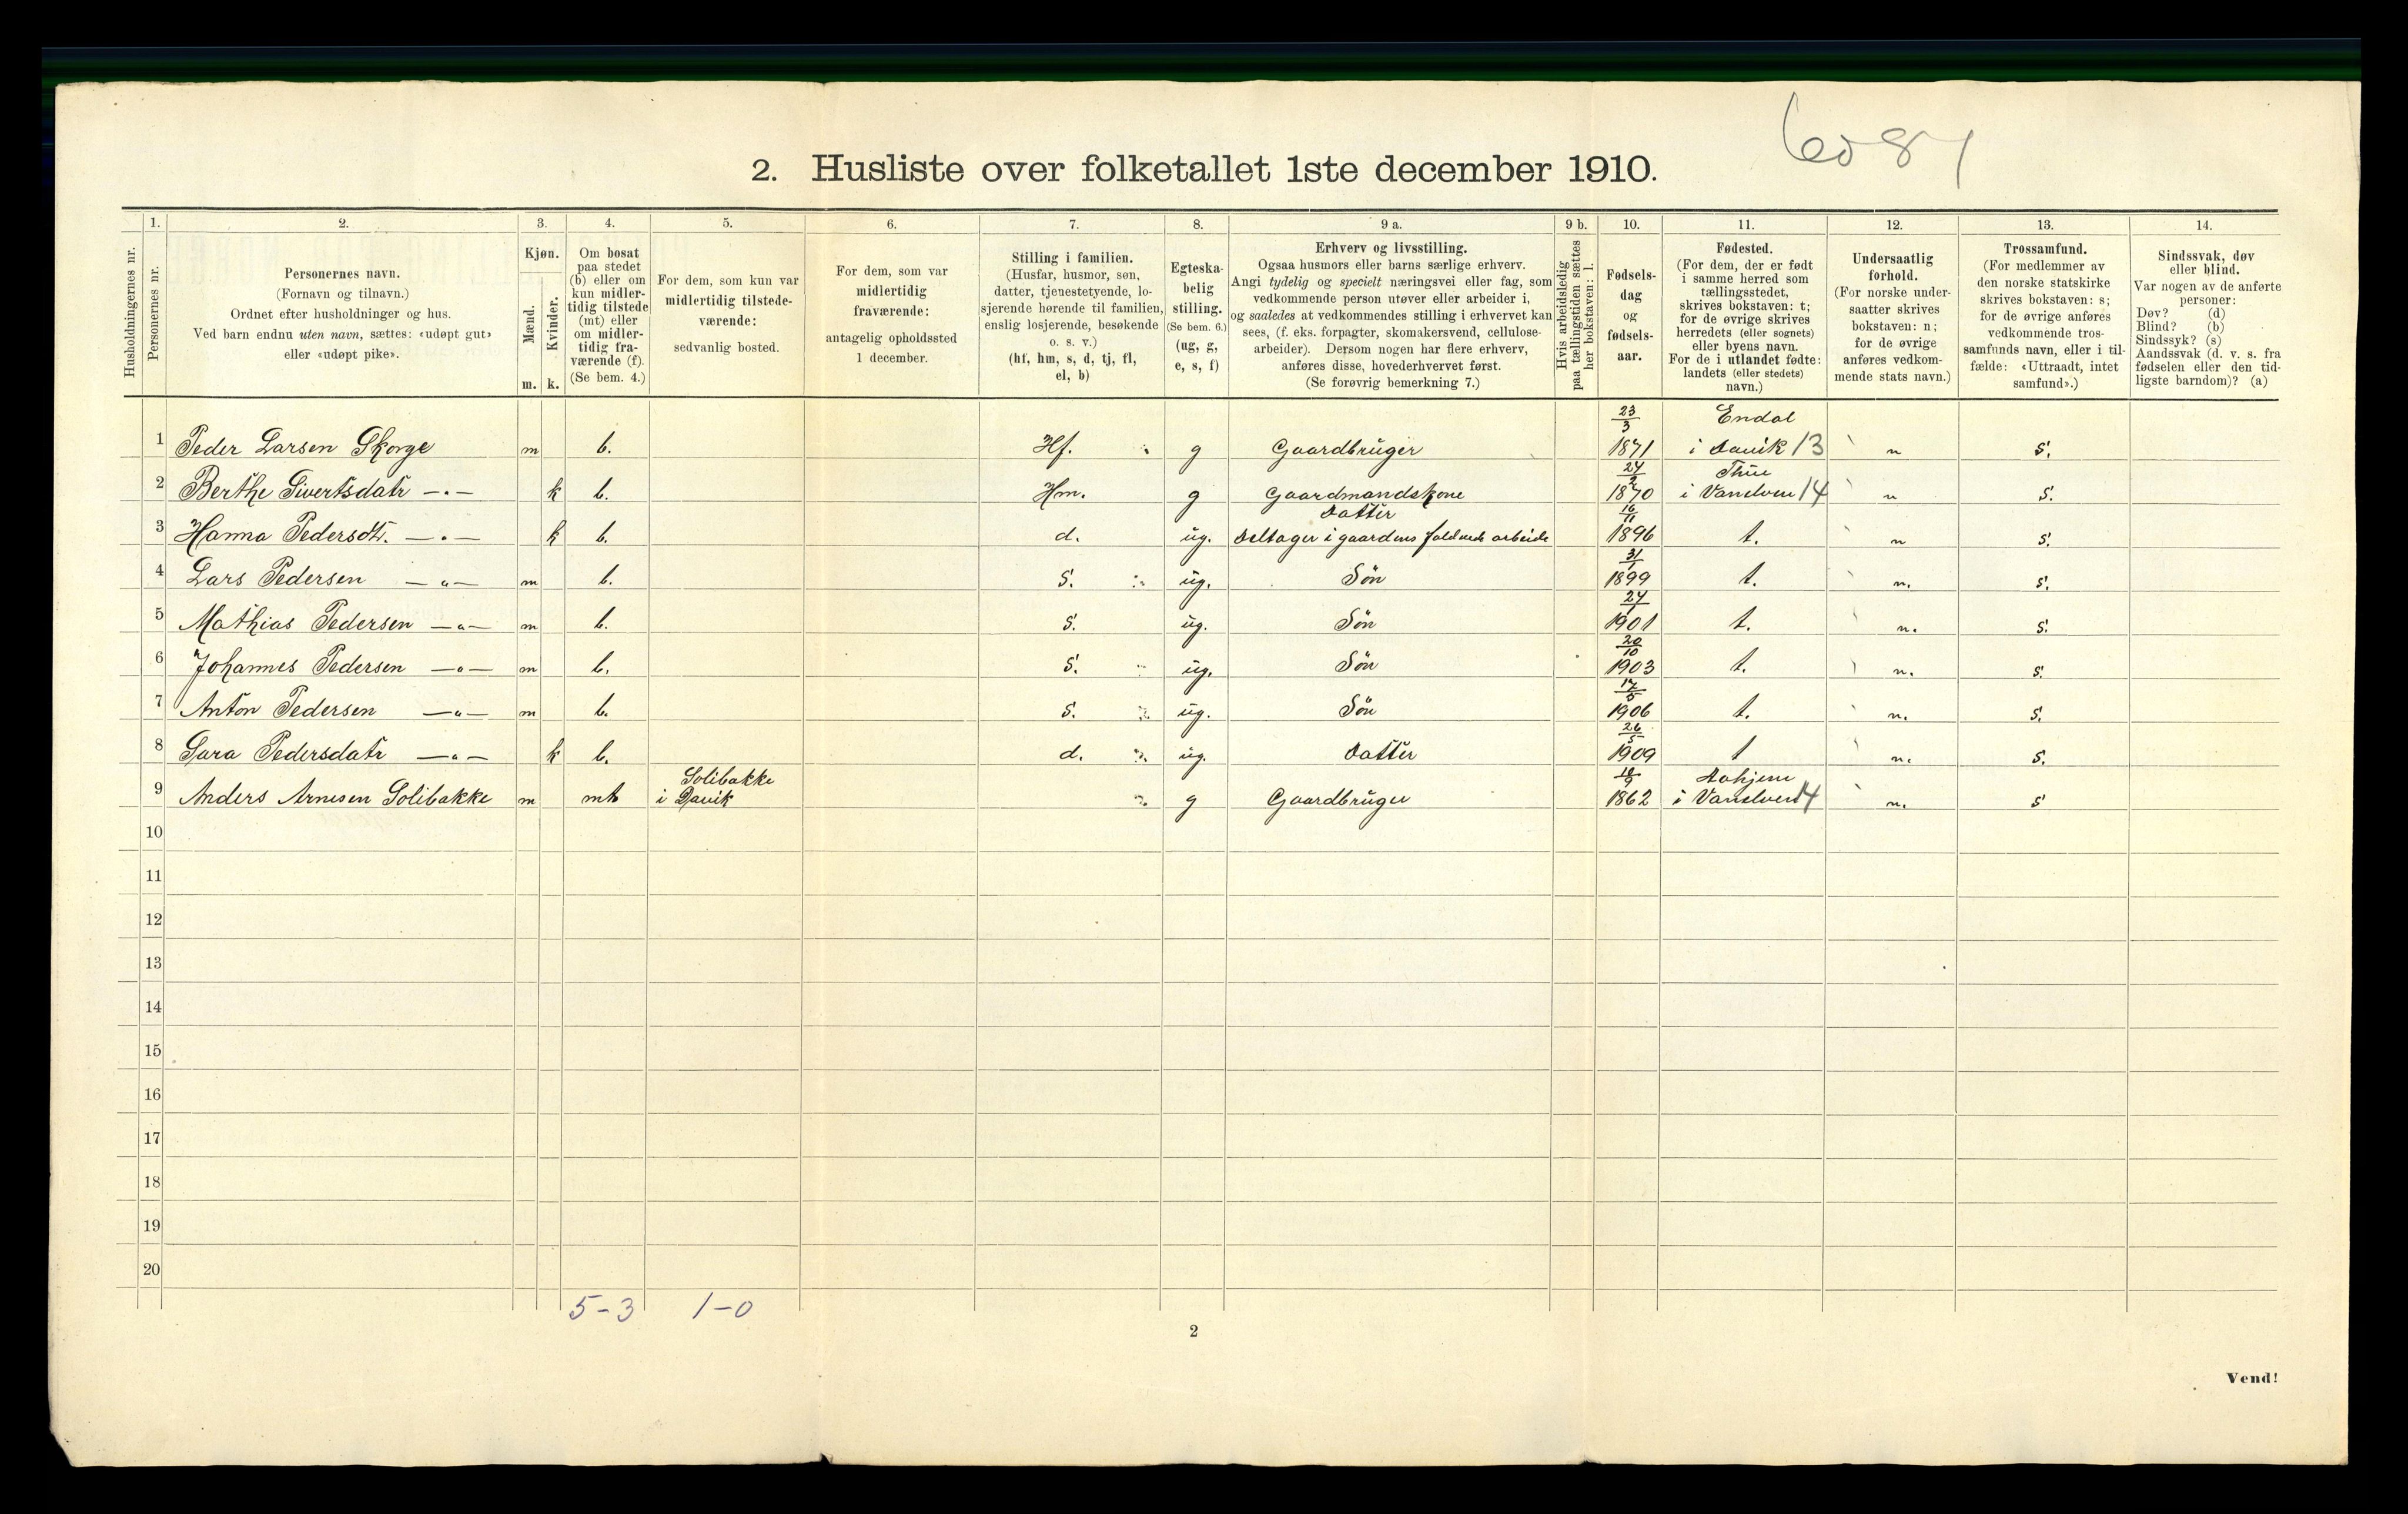 2. Husliste over folketallet 1ste december 1910.
Husholdningernes nr.
1.
Personernes nr.
2.
Personernes navn.
(Fornavn og tilnavn.)
Ordnet efter husholdninger og hus.
Ved barn endnu uten navn, sættes: «udøpt gut»
eller «udøpt pike».
3.
Kjøn.
Mænd.
Kvinder.
m. k.
4.
Om bosat
paa stedet
(b) eller om
kun midler-
tidig tilstede
(mt) eller
om midler-
tidig fra-
værende (f).
(Se bem. 4.)
5.
For dem, som kun var
midlertidig tilstede-
værende:
sedvanlig bosted.
6.
For dem, som var
midlertidig
fraværende:
antagelig opholdssted
1 december.
7.
Stilling i familien.
(Husfar, husmor, søn,
datter, tjenestetyende, lo-
sjerende hørende til familien,
enslig losjerende, besøkende
o. s. v.)
(hf, hm, s, d, tj, fl,
el, b)
8.
Egteska-
belig
stilling.
(Se bem. 6.)
(ug, g,
e, s, f)
9 a.
Erhverv og livsstilling.
Ogsaa husmors eller barns særlige erhverv.
Angi tydelig og specielt næringsvei eller fag, som
vedkommende person utøver eller arbeider i,
og saaledes at vedkommendes stilling i erhvervet kan
sees, (f. eks. forpagter, skomakersvend, cellulose-
arbeider). Dersom nogen har flere erhverv,
anføres disse, hovederhvervet først.
(Se forøvrig bemerkning 7.)
9 b.
Hvis arbeidsledig
paa tællingstiden sættes
her bokstaven: l.
10.
Fødsels-
dag
og
fødsels-
aar.
11.
Fødested.
(For dem, der er født
i samme herred som
tællingsstedet,
skrives bokstaven: t;
for de øvrige skrives
herredets (eller sognets)
eller byens navn.
For de i utlandet fødte:
landets (eller stedets)
navn.)
12.
Undersaatlig
forhold.
(For norske under-
saatter skrives
bokstaven: n;
for de øvrige
anføres vedkom-
mende stats navn.)
13.
Trossamfund.
(For medlemmer av
den norske statskirke
skrives bokstaven: s;
for de øvrige anføres
vedkommende tros-
samfunds navn, eller i til-
fælde: «Uttraadt, intet
samfund».)
14.
Sindssvak, døv
eller blind.
Var nogen av de anførte
personer:
Døv? (d)
Blind? (b)
Sindssyk? (s)
Aandssvak (d. v. s. fra
fødselen eller den tid-
ligste barndom)? (a)
23/3 Endal
1 Peder Larsen Skorge m b. Hf. g Gaardbrüger 1871 i Davik 13 n s.
Thüe
2 Berthe Sivertsdatr —„— k b. Hm. g Gaardmandskone 1870 i Vanelven 14 n s.
Datter 16/11
3 Hanna Pedersdt. —„— k b. d. ug. Deltager i gaardens arbeide 1896 t. n s.
31/1
4 Lars Pedersen —„— m b. s. ug. Sön 1899 t. n. s.
5 Mathias Pedersen —„— m b. s. ug. Sön 1901 t. n. s.
20/10
6 Johannes Pedersen —„— m b. s. ug. Sön 1903 t. n. s.
17/5
7 Anton Pedersen —„— m b. s. ug. Sön 1906 t. n. s.
26/5
8 Sara Pedersdatr —„— k b. d. ug. Datter 1909 t n. s.
Solibakke
9 Anders Arnesen Solibakke m mt i Davik g Gaardbrüger 1862 i Vanelven 14 n. s
10
11
12
13
14
15
16
17
18
19
20
5-3 1-0
2
Vend!